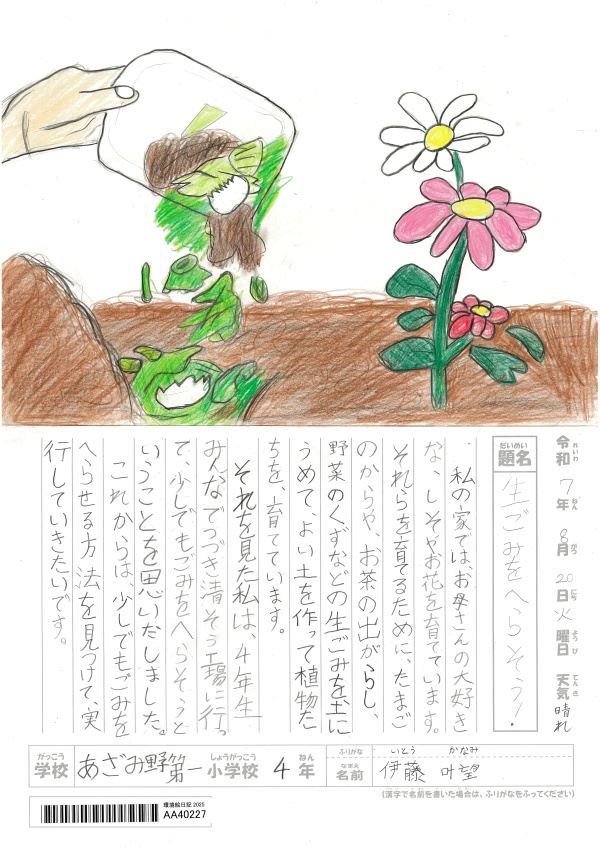 令和 7年 8月 20日 火曜日 天気 晴れ
れいわ ねん がつ にち ようび てんき
だいめい
題名 生ごみをへらそう!
私の家では、お母さんの大好き
な、しそやお花を育てています。
それらを育てるために、たまご
のからや、お茶の出がらし、
野菜のくずなどの生ごみを土に
うめて、よい土を作って植物た
ちを、育てています。
それを見た私は、4年生
みんなでつづき清そう工場に行っ
て、少しでもごみをへらそうと
いうことを思いだしました。
これからは、少しでもごみを
へらせる方法を見つけて、実
行していきたいです。
がっこう しょうがっこう ねん
学校 あざみ野第一小学校 4年
ふりがな いとう かなみ
なまえ
名前 伊藤 叶望
(漢字で名前を書いた場合は、ふりがなをふってください)
環境絵日記 2025
AA40227